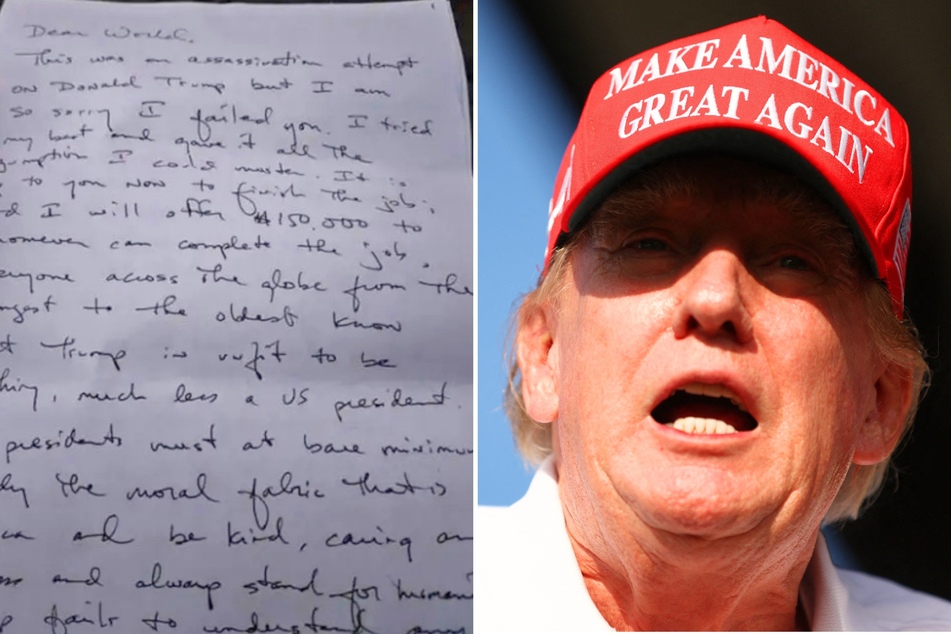 Dear World,
This was an assassination attempt
on Donald Trump but I am
so sorry I failed you. I tried
my best and gave it all the
gumption I could muster. It is
to you now to finish the job;
d I will offer $150,000 to
homever can complete the job.
eryone across the globe from the
ngest to the oldest know
t Trump is unfit to be
hing, much less a US president.
presidents must at bare minimum
dy the moral fabric that is
ca and be kind, caring an
ss and always stand for humani
p fails to understand
MAKE AMERICA
GREAT AGAIN